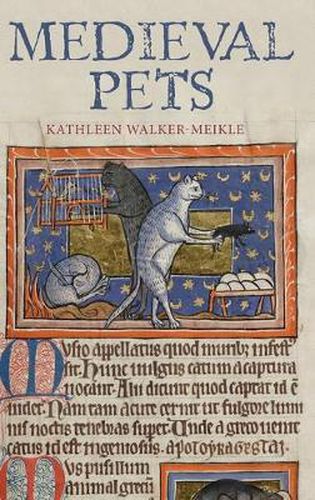 MEDIEVAL
PETS
KATHLEEN WALKER-MEIKLE
Musio appellatus quod murib; infest
sit. Hunc uulgus catum a captura
uocant. Alii dicunt quod captat id ē
uidet. Nam tam acute cernit ut fulgore lumi
nis noctis tenebras superet. Unde a greco uenit
catus id est ingeniosus.
Mus pusillum
animal greci